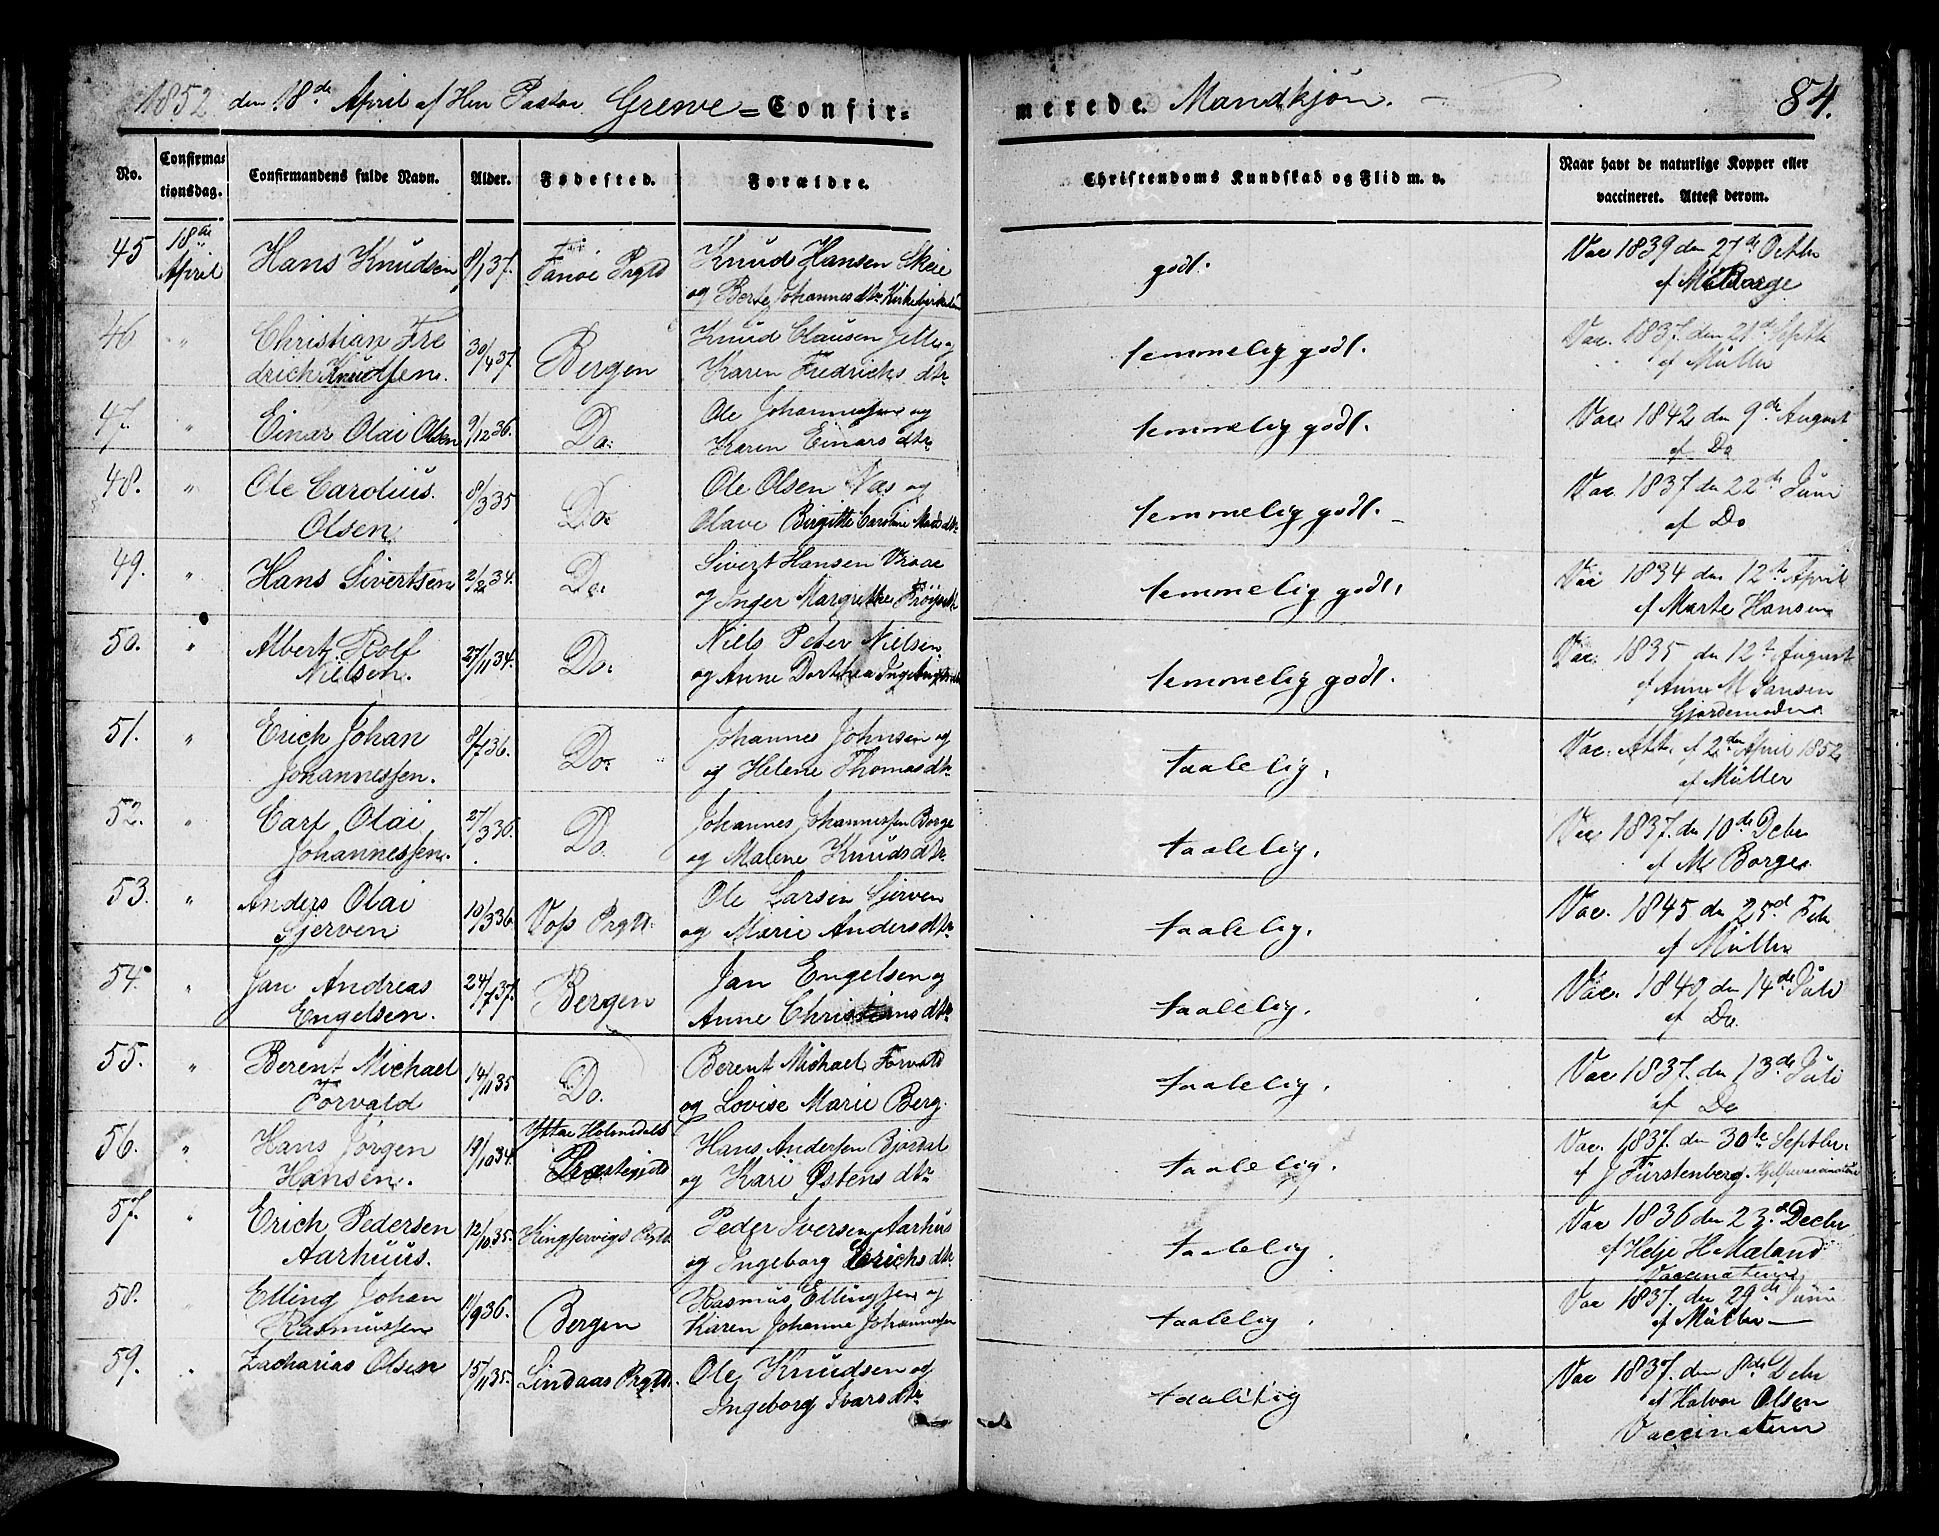 1852 den 18de April af Hrr Pastor Greve = Confir-
merede Mandkjön. 84.
No. Confirmationsdag. Confirmandens fulde Navn. Alder. Fødested. Forældre. Christendoms Kundskab og Flid m. v. Naar havt de naturlige Kopper eller vaccineret. Attest derom.
45 18de April Hans Knudsen 8/1 37. Fanöe Prgld Knud Hansen Skeie
og Berte Johannesdtr godt. Vac 1839 den 27de Octbr
af M Borge
46 " Christian Fre
drich Knudsen. 30/4 37. Bergen Knud Clausen
Karen Fredrichs dtr temmelig godt. Vac. 1837. den 21de Septb
af Müller
47. " Einar Olai Olsen 9/12 36. Do. Ole Johannessen og
Karen Einarsdtr temmelig godt. Vac 1842 den 9de August
af Do
48. " Ole Carolius
Olsen 8/3 35 Do. Ole Olsen Næs og
Olave Birgitte Caroline Madsdtr temmelig godt. Vac 1837 den 22de Juni
af Do
49. " Hans Sivertsen 2/2 34. Do. Sivert Hansen Vraae
og Inger Margrethe temmelig godt. Vac 1834 den 12te April
af Marte Hansen
50. " Albert Rolf
Nielsen. 27/11 34. Do. Niels Peter Nielsen
og Anne Dorthea temmelig godt. Vac. 1835 den 12te August
af Anne M Jansen
Gjordemoder
51. " Erich Johan
Johannessen. 8/7 36. Do. Johannes Johnsen og
og Helene Thomasdtr taalelig. Vac. Att. af 2den April 1852
af Müller
52. " Carl Olai
Johannessen. 27/3 36. Do Johannes Johannessen Borge
og Malene Knudsdtr taalelig. Vac 1837. den 10de Debr
af M Borge
53. " Anders Olai
Gjerven 10/3 36 Voss Prgld. Ole Larsen Gjerven
og Marie Andersdtr taalelig. Vac. 1845 den 25d Feb
af Müller
54. " Jan Andreas
Engelsen. 24/7 37. Bergen Jan Engelsen og
Anne Christiansdtr taalelig. Vac. 1840 den 14de Juli
af Do.
55. " Berent Michael
Torvald 14/11 35 Do. Berent Michael Torvald
og Lovise Marie Berg. taalelig. Vac 1837. den 13de Juli
af Do
56. " Hans Jörgen
Hansen. 14/10 34. Yttre Holmedals
Præstegjeld Hans Andersen Bjordal
og Kari Østensdtr taalelig. Vac. 1837. den 30te Septbr.
af J Fürstenberg. Hjelpevaccinatör
57. " Erich Pedersen
Aarhuus. 12/10 35. Kingservigs Prgld. Peder Iversen Aarhus
og Ingeborg Erichsdtr taalelig. Vac 1836 den 23d Decbr
af Helje H Mæland
Vaccinatör
58. " Elling Johan
Rasmussen 11/9 36. Bergen Rasmus Ellingsen og
Karen Johanne Johannessen taalelig. Vac 1837. den 29de Juni
af Müller
59. " Zacharias Olsen 15/11 35. Lindaas Prgld. Ole Knudsen og
Ingeborg Ivarsdtr taalelig Vac 1837. den 8de Debr
af Halvor Olsen
Vaccinateur